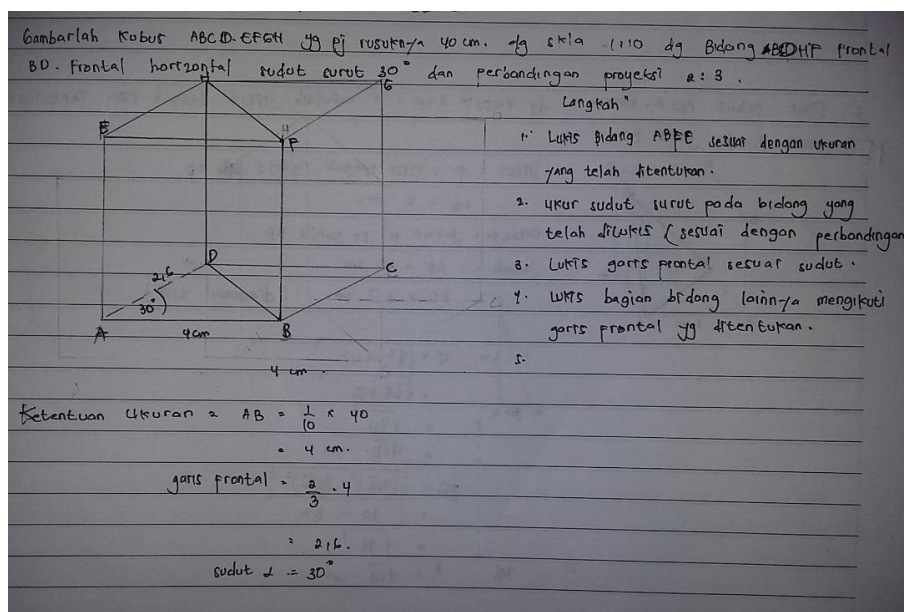 Gambarlah Kubus ABCD.EFGH yg pj rusuknya 40 cm. dg skla 1:10 dg Bidang ABCDHF frontal
BD. Frontal horizontal sudut surut 30° dan perbandingan proyeksi 2:3.
Langkah"
1. Lukis Bidang ABFE sesuai dengan ukuran
yang telah ditentukan.
2. Ukur sudut surut pada bidang yang
telah dilukis (sesuai dengan perbandingan
3. Lukis garis frontal sesuai sudut.
4. Lukis bagian bidang lainnya mengikuti
garis frontal yg ditentukan.
5.
H
G
E
4
F
D
C
2,6
30°
A
4cm
B
4 cm.
Ketentuan Ukuran = AB = 1/10 x 40
= 4 cm.
garis frontal = 2/3 . 4
= 2,6.
sudut α = 30°